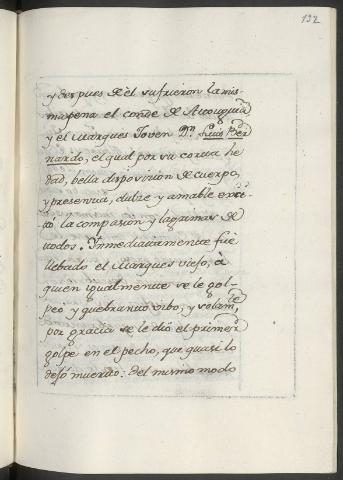 132
y despues de èl sufrieron la mis-
ma pena el conde de Atouguia,
y el Marques Joven Dn. Luis Ber
nardo, el qual por su corta he
dad, bella disposicion de cuerpo,
y presencia, dulze y amable exci-
tó la compasion y lagrimas de
todos. Ynmediatamente fuè
llebado el Marques viejo, à
quien igualmente se le gol-
peó y quebrantó vibo, y solamte.
por gracia se le diò el primer
golpe en el pecho, que quasi lo
dejó muerto: del mismo modo